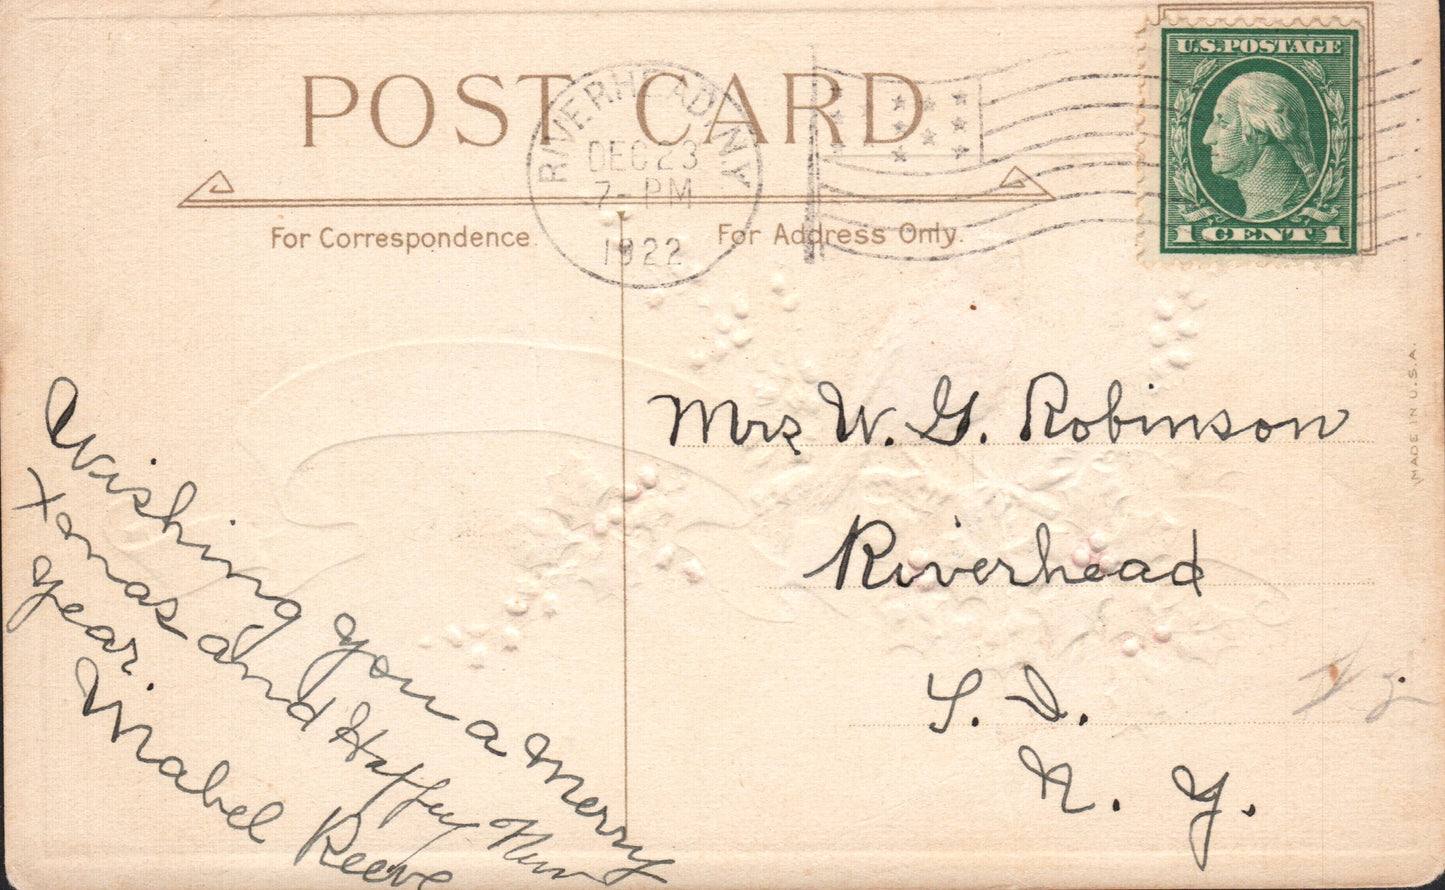 POST CARD
RIVERHEAD N.Y.
DEC 23
7 - PM
1922
U.S. POSTAGE
1 CENT 1
For Correspondence
For Address Only.
Wishing you a Merry
Xmas and Happy New
year.
Mabel Reeve
Mrs W. G. Robinson
Riverhead
L. I.
N. Y.
MADE IN U.S.A.